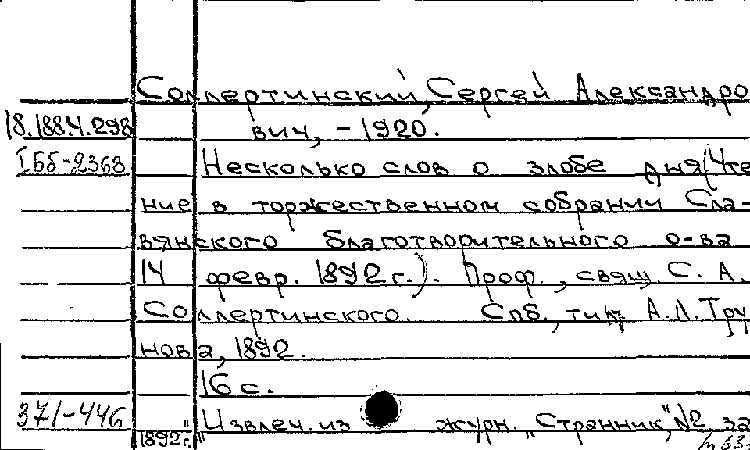 Соллертинский, Сергей Александро
18.188.4.298 вич, -1920.
I Бб-2368 Несколько слов о злобе дня (Чте
ние в торжественном собрании Сла-
вянского Благотворительного о-ва
14 февр. 1892 г.). Проф., свящ. С. А.
Соллертинского. Спб., тип. А.Л. Тру
нова, 1892.
16 с.
371-446 Извлеч. из журн. "Странник", №2 за
1892г."